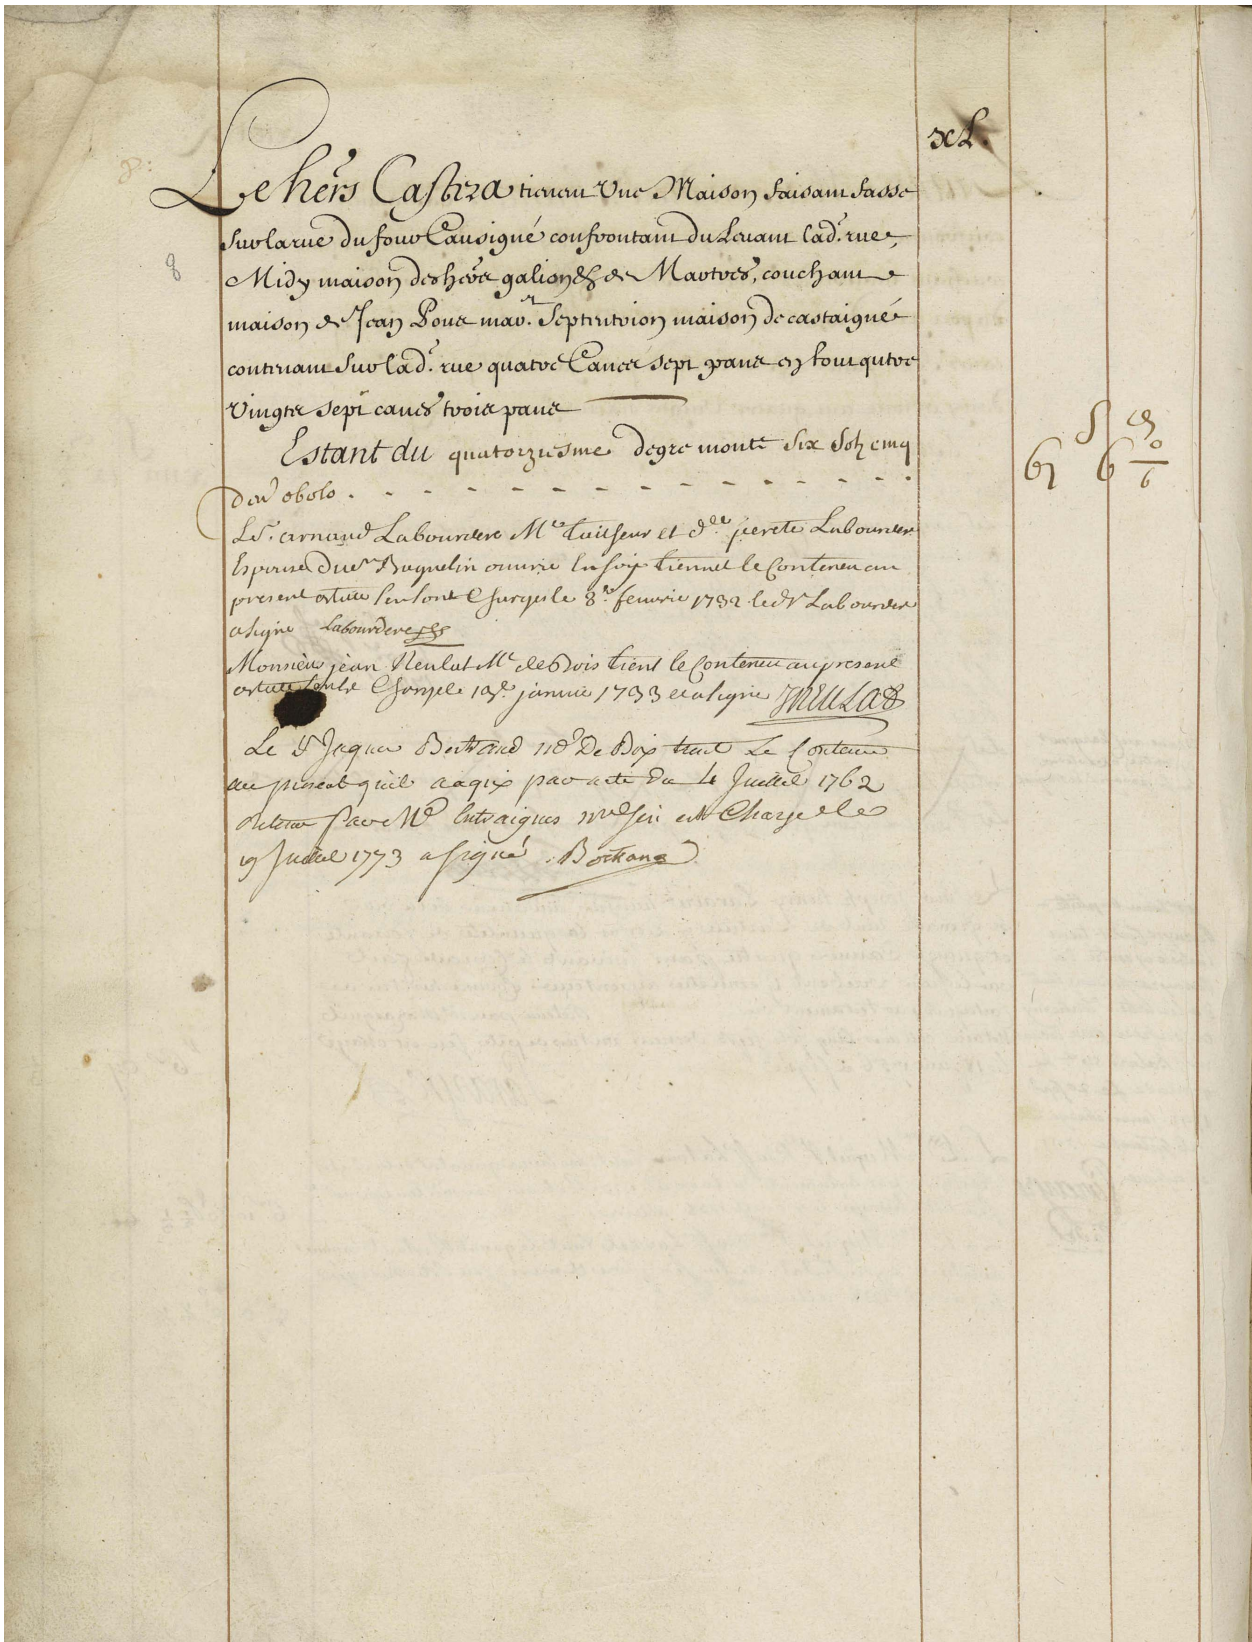 xL.
Le hers Castera tienent Vne Maison faisant fasse
sur la rue du four Cansigné confrontant du Leuant lad. rue,
8
Midy maison des hers galion &
de Martres, couchant
maison de Jean Pous mar. Septentrion maison de castaigné
contenant sur lad. rue quatre Canes sept pans en tout qutre
Vingts sept canes trois pans
Estant du quatorziesme degre monte six solz cinq
den obolo . - - - - - - - - - - - - - .
S
67 6
6
Le Sr. arnaud Labourdere Me tailleur et dlle perete Labourdere
Espouse du Sr Buquelin ouurie en soye tiennet le Conteneu au
present article sen sont Charges le 8e feurrie 1732 led Sr Labourdere
a signe Labourdere
Monsieur jean Neulat Me de Bois tient le Conteneu au present
article Charge le janvie 1733 et a signe JNEULAT
Le Sr Jaques Bertrand md De Bois tient Le Contenu
au present quil aaqis par acte du 4 Juillet 1762
Retenu par Me Entraigues sen est Charge le
19 Juillet 1773 a signé. Bertrand